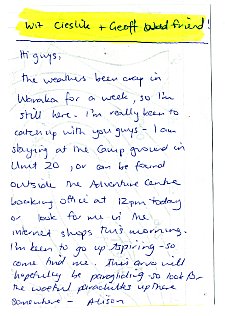 Wit Cieslik + Geoff Wood friend!
Hi guys,
the weathers been crap in
Wanaka for a week, so I'm
still here. I'm really keen to
catch up with you guys - I am
staying at the Camp ground in
Unit 20, or can be found
outside the Adventure Centre
booking office at 12pm today
or look for me in the
internet shops this morning.
I'm keen to go up Aspiring - so
come find me. This arvo will
hopefully be paragliding so look for
the woeful parachutes up there
somewhere - Alison